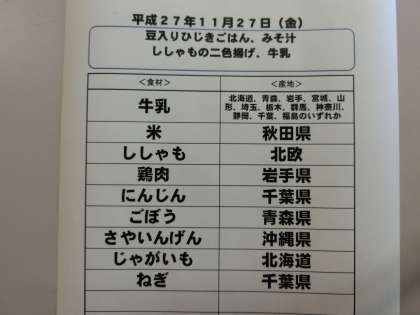 平成27年11月27日（金）
豆入りひじきごはん、みそ汁
ししゃもの二色揚げ、牛乳
＜食材＞ ＜産地＞
牛乳 北海道、青森、岩手、宮城、山
形、埼玉、栃木、群馬、神奈川、
静岡、千葉、福島のいずれか
米 秋田県
ししゃも 北欧
鶏肉 岩手県
にんじん 千葉県
ごぼう 青森県
さやいんげん 沖縄県
じゃがいも 北海道
ねぎ 千葉県